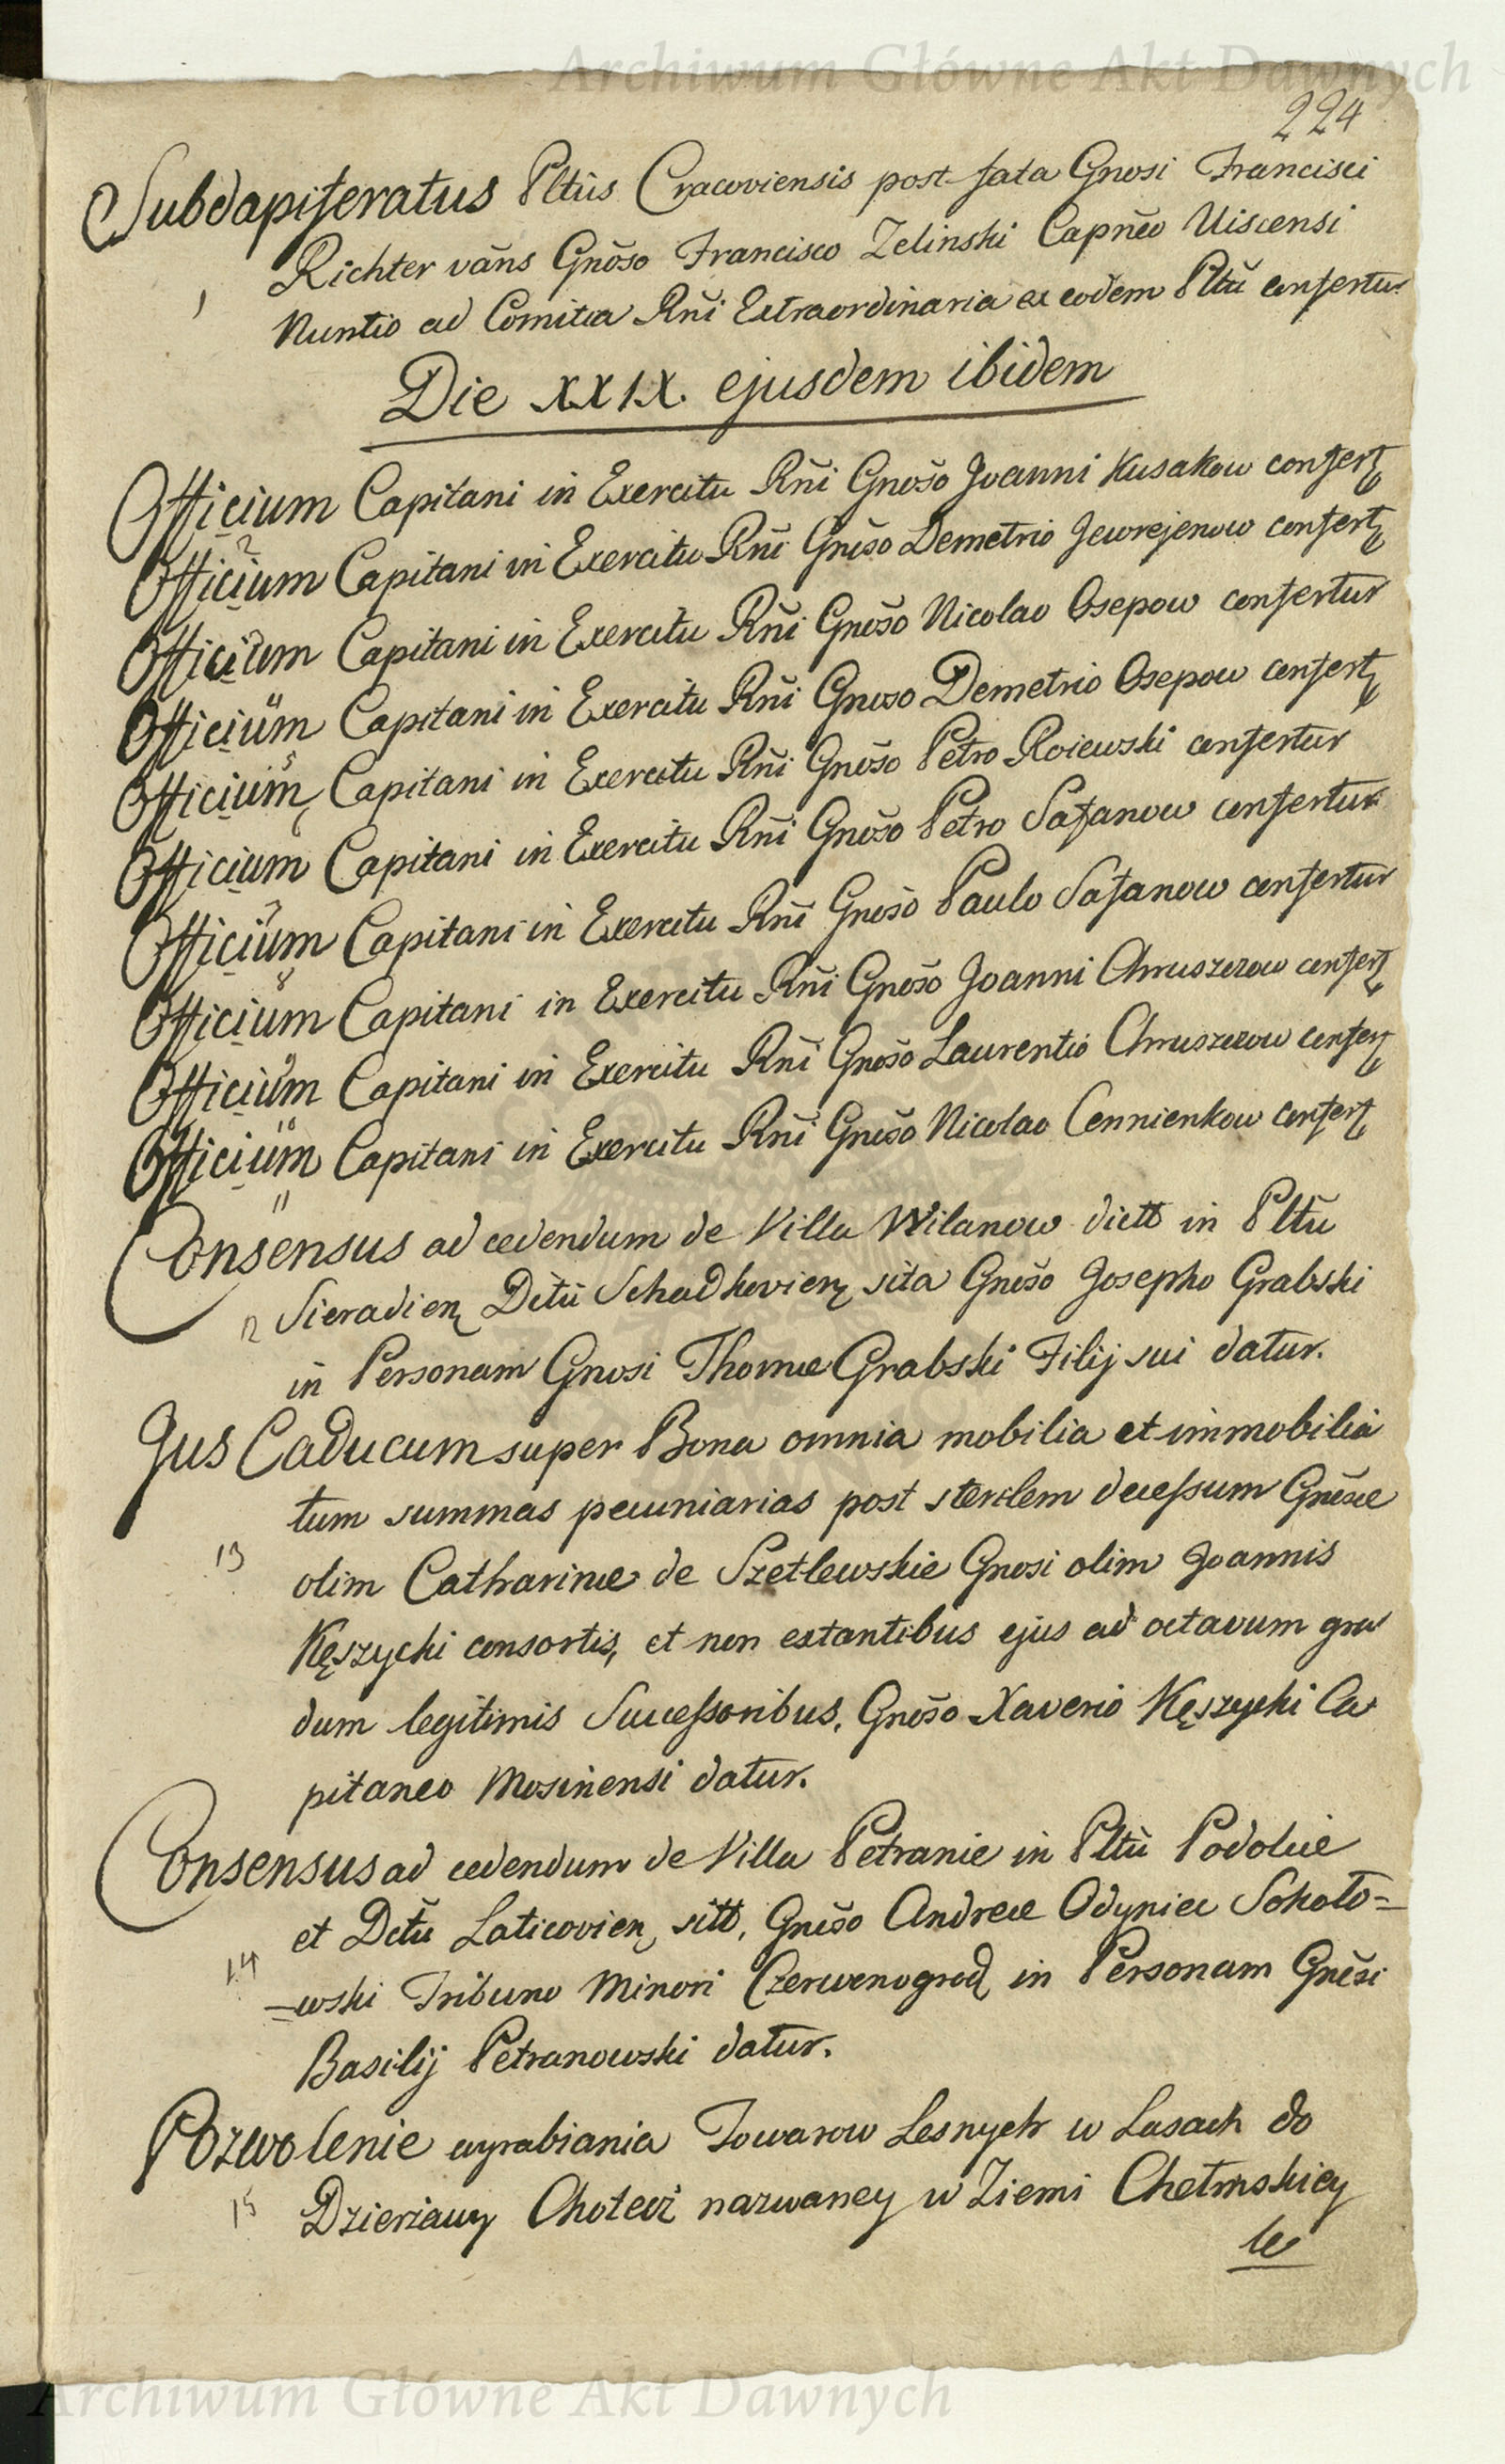 Archiwum Główne Akt Dawnych
224
Subdapiferatus Pltûs Cracoviensis post fata Gnosi Francisci
Richter vañs Gnõso Francisco Zelinski Capnẽo Uiscensi
1 Nuntio ad Comitia Rñi Extraordinaria ex eodem Pltũ confertur
Die XXIX. ejusdem ibidem
Officium Capitani in Exercitu Rñi Gnõso Joanni Kusakow confert
2
Officium Capitani in Exercitu Rñi Gnõso Demetrio Jewrejenow confert
Officium Capitani in Exercitu Rñi Gnõso Nicolao Osepow confertur
Officium Capitani in Exercitu Rñi Gnoso Demetrio Osepow confert
5
Officium Capitani in Exercitu Rñi Gnõso Petro Roiewski confertur
6
Officium Capitani in Exercitu Rñi Gnõso Petro Safanow confertur
7
Officium Capitani in Exercitu Rñi Gnõso Paulo Safanow confertur
8
Officium Capitani in Exercitu Rñi Gnõso Joanni Chruszczow confert
9
Officium Capitani in Exercitu Rñi Gnõso Laurentio Chruszczow confert
10
Officium Capitani in Exercitu Rñi Gnõso Nicolao Cennienkow confert
11
Consensus ad cedendum de Villa Wilanow dictt in Pltũ
12 Sieradien Dctũ Schadkovien sita Gnõso Josepho Grabski
in Personam Gnosi Thomæ Grabski Filij sui datur.
Jus Caducum super Bona omnia mobilia et immobilia
tum summas pecuniarias post sterilem decessum Gnõsæ
13 olim Catharinæ de Szetlewskie Gnosi olim Joannis
Kęszycki consortis, et non extantibus ejus ad octavum gra
dum legitimis Successoribus, Gnõso Xaverio Kęszycki Ca
pitaneo Mosinensi datur.
Consensus ad cedendum de Villa Petranie in Pltũ Podoliæ
et Dctũ Laticovien sitt, Gnõso Andreæ Odyniec Sokoło=
14 =wski Tribuno Minori Czerwonogrod in Personam Gnõsi
Basilij Petranowski datur.
Pozwolenie wyrabiania Towarow Lesnych w Lasach do
15 Dzierzawy Chotecż nazwaney w Ziemi Chełmskiey
le
Archiwum Główne Akt Dawnych